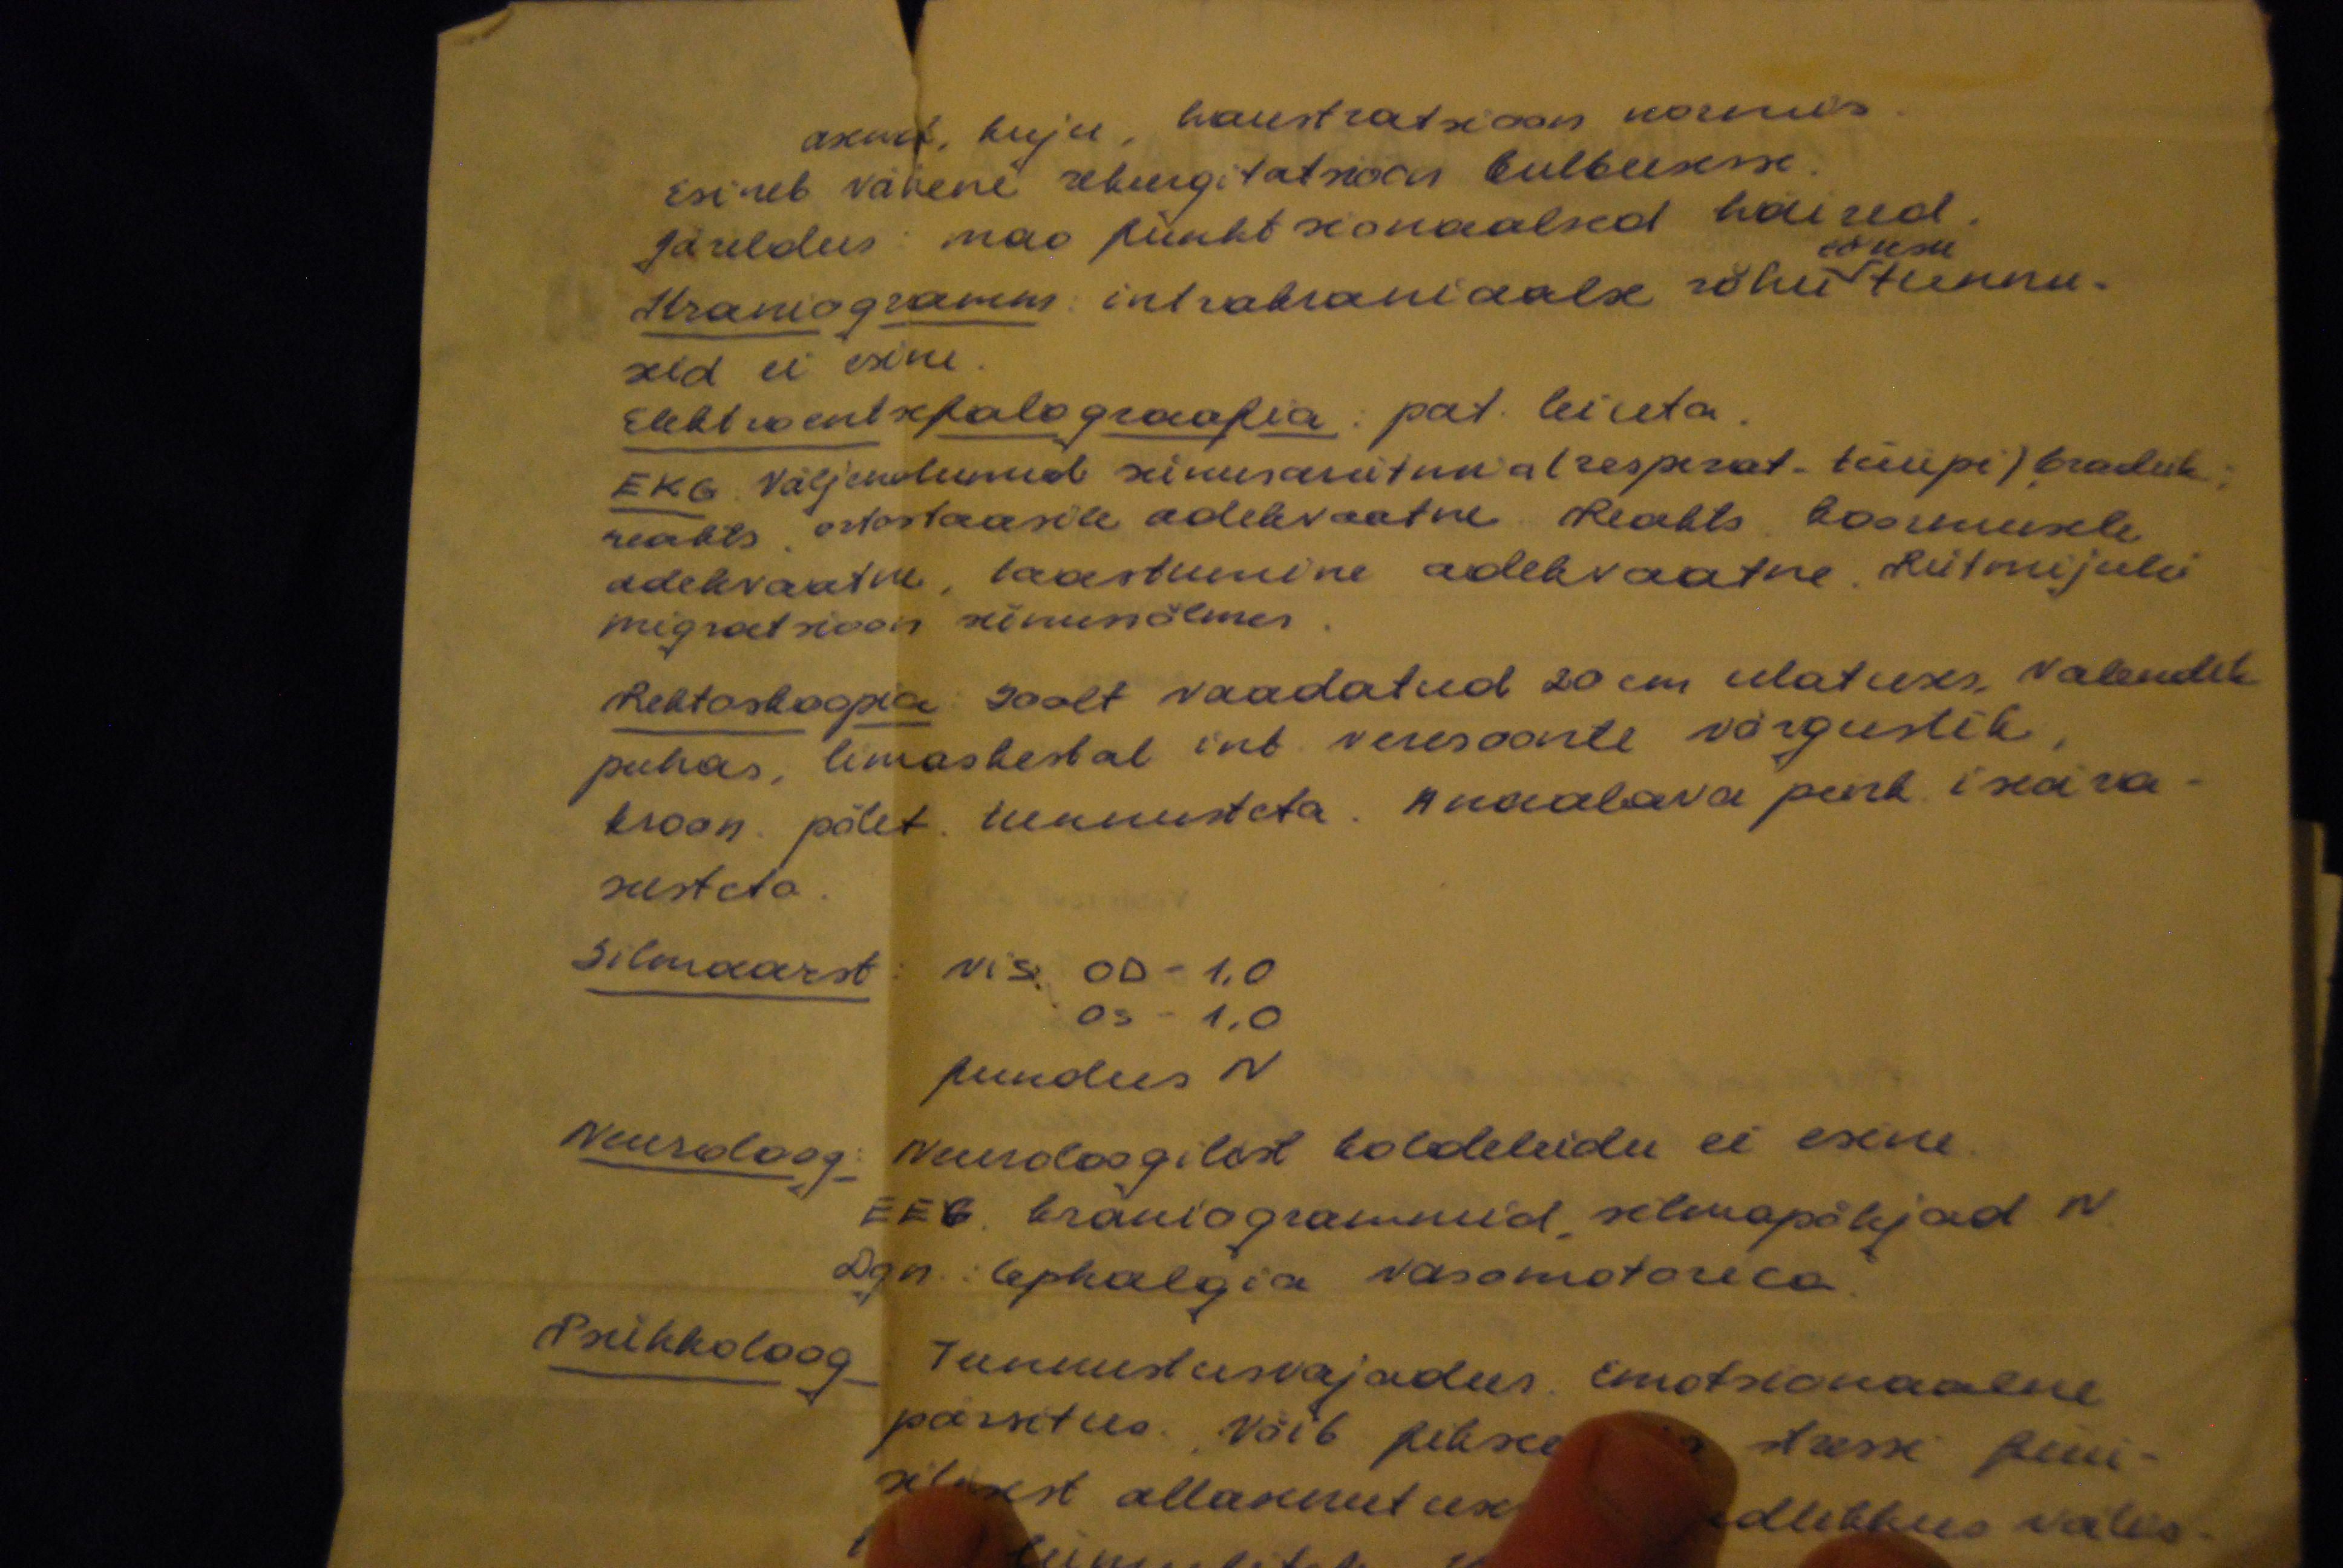 asend, kuju, haustratsioon normis.
Esineb vähene rekurgitatsioon bulbusesse.
Järeldus: mao funktsionaalsed häired.
Kraniogramm: intrakraniaalse rõhu tõusu tunnu-
seid ei esine.
Elektroentsefalograafia: pat. leiuta.
EKG. Väljendunud siinusarütmia (respirat. tüüpi), bradük;
reakts. ortostaasile adekvaatne. Reakts. koormusele
adekvaatne, taastumine adekvaatne. Rütmijuhi
migratsioon siinussõlmes.
Rektoskoopia: Soolt vaadatud 20 cm ulatuses. Valendik
puhas, limaskestal int. veresoonte võrgustik,
kroon. põlet. tunnusteta. Anaalava piirk. iseära-
susteta.
Silmaarst: vis. OD - 1,0
OS - 1,0
fundus N
Neuroloog: Neuroloogilist koldeleidu ei esine.
EEG. kraniogrammid, silmapõhjad N.
Dgn.: Cephalgia vasomotorica.
Psühholoog Tunnustusvajadus. Emotsionaalne
pärsitus. Võib stressi füüi-
silisest allasurutuse väliss-